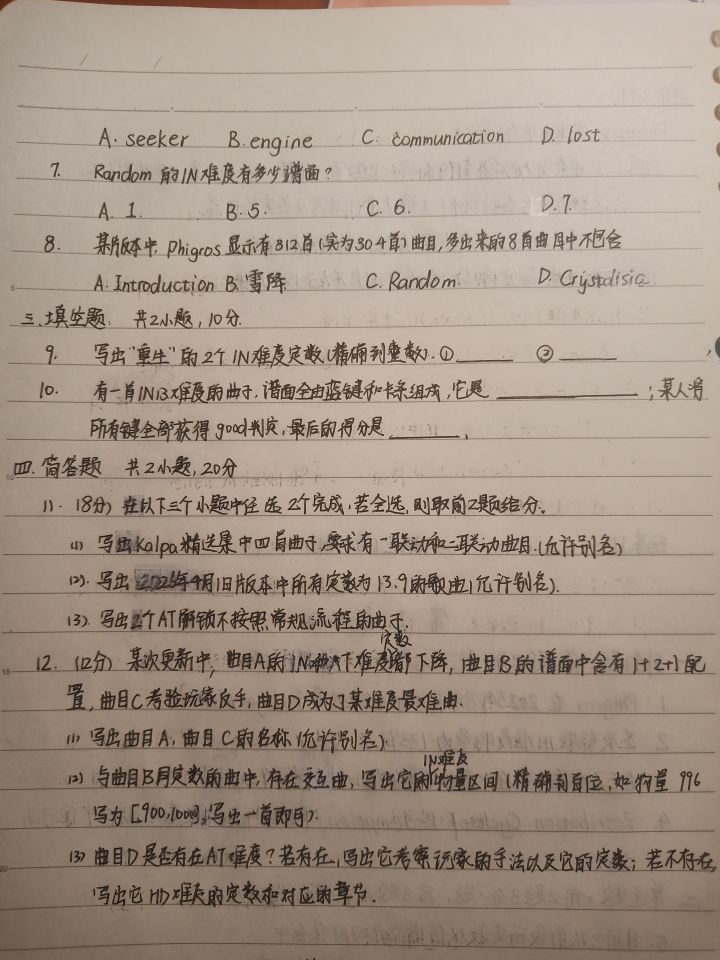 A. seeker B. engine C. communication D. lost
7. Random 的IN难度有多少谱面?
A. 1. B. 5. C. 6. D. 7.
8. 某版本中, Phigros 显示有312首(实为304首)曲目,多出来的8首曲目中不包含
A. Introduction B. 雪降 C. Random D. Crystalisia
三.填空题. 共2小题,10分.
9. 写出“重生”的2个IN难度定数(精确到整数).① ______ ② ______
10. 有一首IN13难度的曲子,谱面全由蓝键和卡条组成,它是 ____________ ;某人将
所有键全部获得good判定,最后的得分是 ______ .
四.简答题 共2小题,20分
11. (8分) 在以下三个小题中任选2个完成.若全选,则取前2题给分.
(1) 写出Kalpa精选集中四首曲子,要求有一联动和二联动曲目.(允许别名)
(2). 写出2025年4月旧版本中所有定数为13.9的歌曲(允许别名).
(3). 写出2个AT解锁不按照常规流程的曲子.
定数
12. (12分) 某次更新中,曲目A的IN 难度都下降,曲目B的谱面中含有1+2+1配
置,曲目C考验玩家反手,曲目D成为了某难度最难曲.
(1) 写出曲目A,曲目C的名称(允许别名).
IN难度
(2) 与曲目B同定数的曲中,存在交互曲,写出它的物量区间(精确到百位,如物量996
写为[900,1000],写出一首即可).
(3) 曲目D是否有在AT难度?若存在,写出它考察玩家的手法以及它的定数;若不存在,
写出它HD难度的定数和对应的章节.